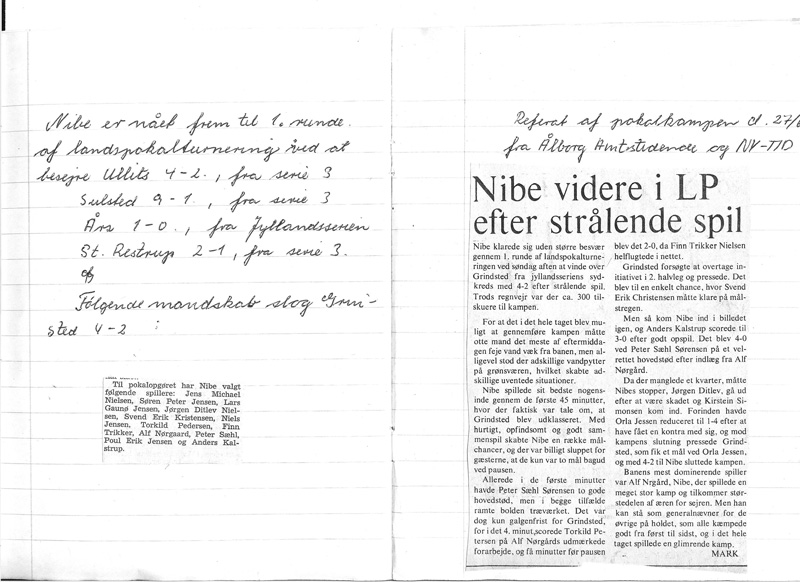 Nibe er nået frem til 1. runde
af landspokalturnering ved at
besejre Ullits 4-2., fra serie 3
Sulsted 9-1, fra serie 3
Års 1-0., fra Jyllandsserien
St. Restrup 2-1, fra serie 3.
Følgende mandskab slog Grin-
sted 4-2 :
Til pokalopgøret har Nibe valgt
følgende spillere: Jens Michael
Nielsen, Søren Peter Jensen, Lars
Gaunø Jensen, Jørgen Ditlev Niel-
sen, Svend Erik Kristensen, Niels
Jensen, Torkild Pedersen, Finn
Trikker, Alf Nørgaard, Peter Sæhl,
Poul Erik Jensen og Anders Kal-
strup.
Referat af pokalkampen d. 27/6
fra Ålborg Amtstidende og NV-TID
Nibe videre i LP
efter strålende spil
Nibe klarede sig uden større besvær
gennem 1. runde af landspokalturne-
ringen ved søndag aften at vinde over
Grindsted fra jyllandsseriens syd-
kreds med 4-2 efter strålende spil.
Trods regnvejr var der ca. 300 til-
skuere til kampen.
For at det i det hele taget blev mu-
ligt at gennemføre kampen måtte
otte mand det meste af eftermidda-
gen feje vand væk fra banen, men al-
ligevel stod der adskillige vandpytter
på grønsværen, hvilket skabte ad-
skillige uventede situationer.
Nibe spillede sit bedste nogens-
inde gennem de første 45 minutter,
hvor der faktisk var tale om, at
Grindsted blev udklasseret. Med
hurtigt, opfindsomt og godt sam-
menspil skabte Nibe en række mål-
chancer, og der var billigt sluppet for
gæsterne, at de kun var to mål bagud
ved pausen.
Allerede i de første minutter
havde Peter Sæhl Sørensen to gode
hovedstød, men i begge tilfælde
ramte bolden træværket. Det var
dog kun galgenfrist for Grindsted,
for i det 4. minut,scorede Torkild Pe-
tersen på Alf Nørgårds udmærkede
forarbejde, og få minutter før pausen
blev det 2-0, da Finn Trikker Nielsen
helflugtede i nettet.
Grindsted forsøgte at overtage in-
itiativet i 2. halvleg og pressede. Det
blev til en enkelt chance, hvor Svend
Erik Christensen måtte klare på mål-
stregen.
Men så kom Nibe ind i billedet
igen, og Anders Kalstrup scorede til
3-0 efter godt opspil. Det blev 4-0
ved Peter Sæhl Sørensen på et vel-
rettet hovedstød efter indlæg fra Alf
Nørgård.
Da der manglede et kvarter, måtte
Nibes stopper, Jørgen Ditlev, gå ud
efter at være skadet og Kirstein Si-
monsen kom ind. Forinden havde
Orla Jessen reduceret til 1-4 efter at
have fået en kontra med sig, og mod
kampens slutning pressede Grind-
sted, som fik et mål ved Orla Jessen,
og med 4-2 til Nibe sluttede kampen.
Banens mest dominerende spiller
var Alf Nrgård, Nibe, der spillede en
meget stor kamp og tilkommer stør-
stedelen af æren for sejren. Men han
kan stå som generalnævner for de
øvrige på holdet, som alle kæmpede
godt fra først til sidst, og i det hele
taget spillede en glimrende kamp.
MARK